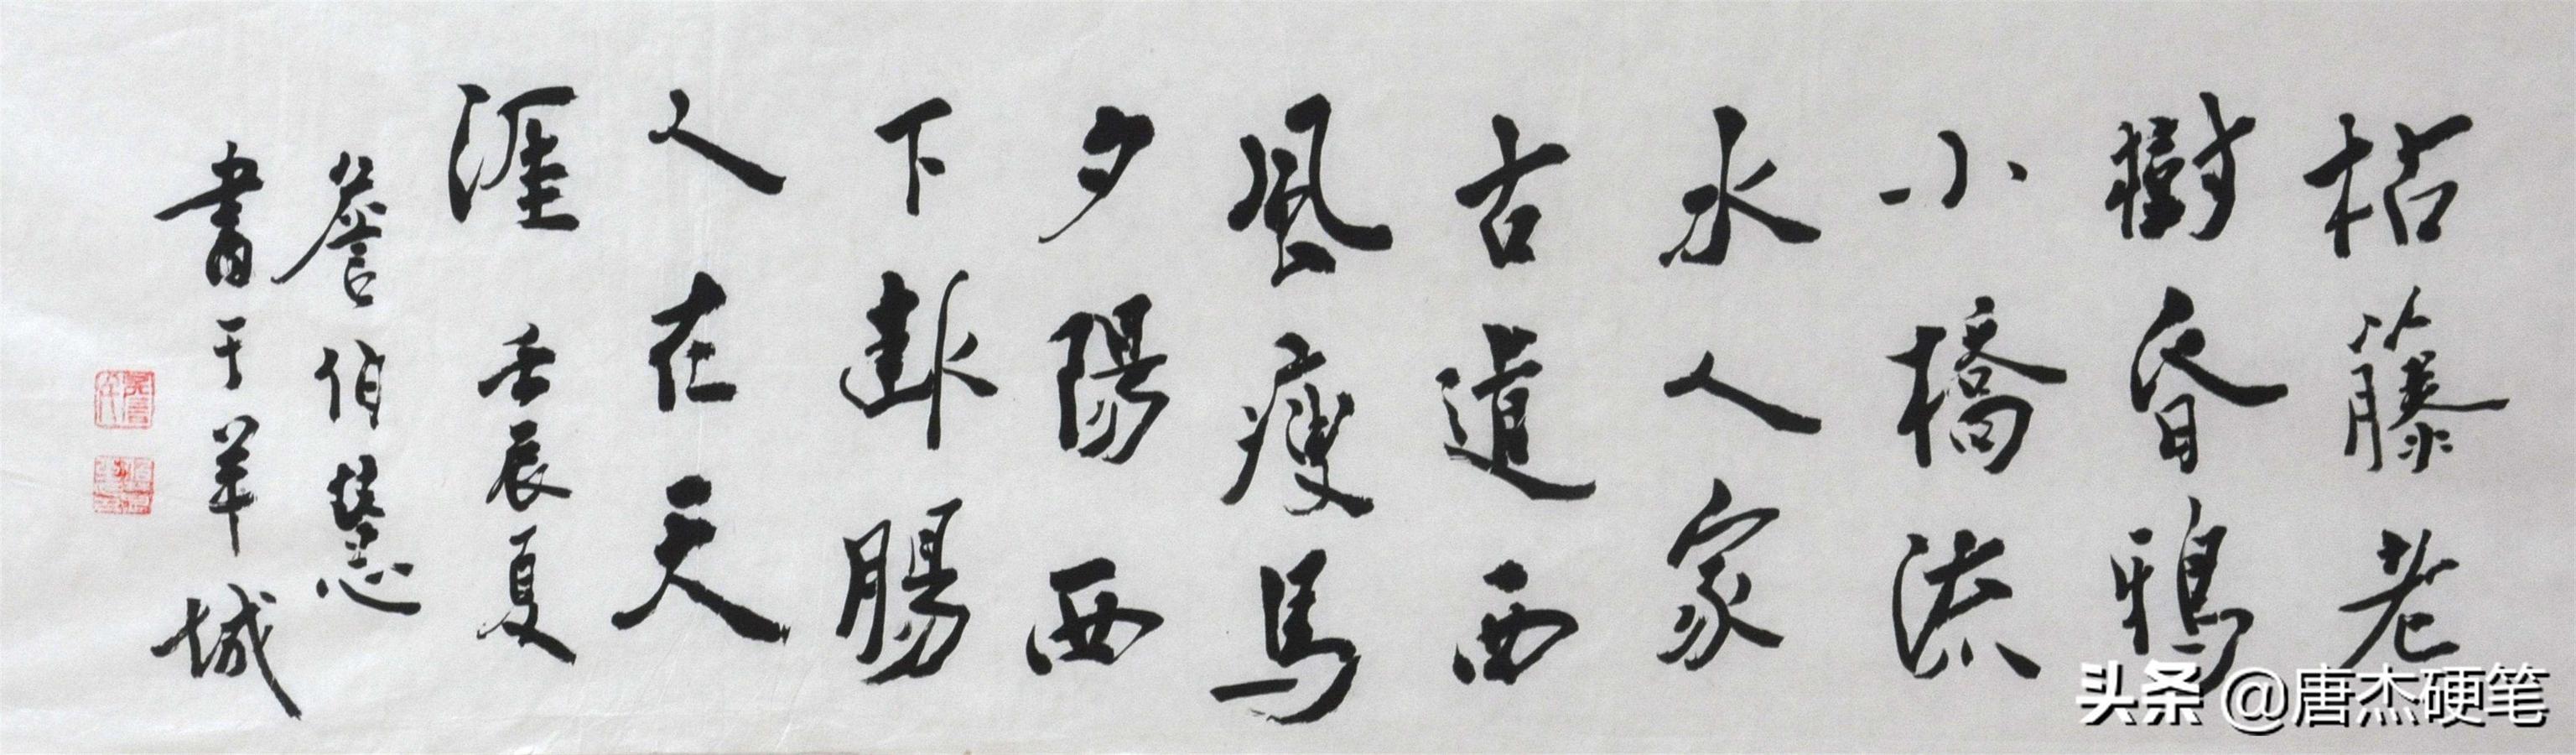 枯籐老
樹昏鴉
小橋流
水人家
古道西
風瘦馬
夕陽西
下斷腸
人在天
涯 壬辰夏
詹伯慧
書于羊城
头条 @唐杰硬笔